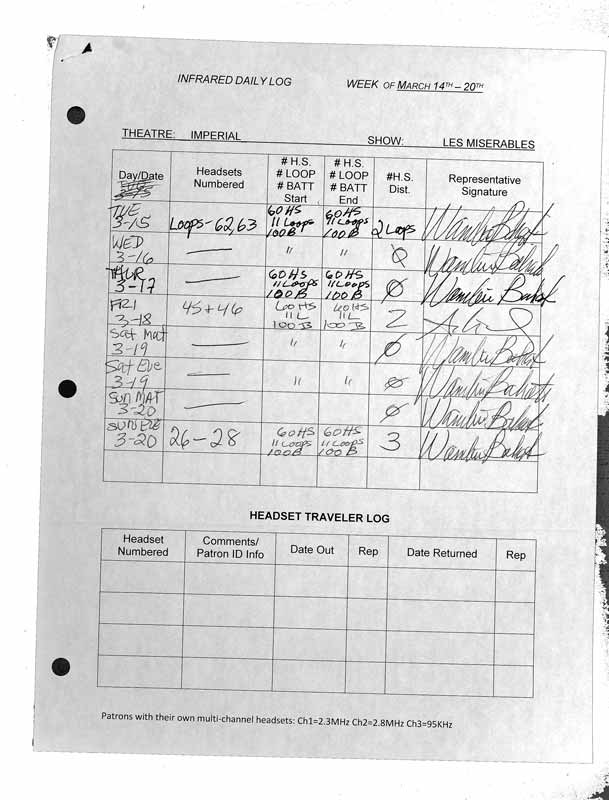 INFRARED DAILY LOG WEEK OF MARCH 14TH – 20TH
THEATRE: IMPERIAL SHOW: LES MISERABLES
Day/Date
Headsets
Numbered
# H.S.
# LOOP
# BATT
Start
# H.S.
# LOOP
# BATT
End
#H.S.
Dist.
Representative
Signature
TUE
3-15
Loops-62,63
60HS
11 Loops
100B
60HS
11 Loops
100B
2 Loops
WED
3-16
—
"
"
Ø
THUR
3-17
—
60HS
11 Loops
100B
60HS
11 Loops
100B
Ø
FRI
3-18
45 + 46
60HS
11 L
100 B
60HS
11 L
100 B
2
Sat Mat
3-19
—
"
"
Ø
Sat Eve
3-19
—
"
"
Ø
SUN MAT
3-20
—
Ø
SUN EVE
3-20
26-28
60HS
11 Loops
100B
60HS
11 Loops
100B
3
HEADSET TRAVELER LOG
Headset
Numbered
Comments/
Patron ID Info
Date Out
Rep
Date Returned
Rep
Patrons with their own multi-channel headsets: Ch1=2.3MHz Ch2=2.8MHz Ch3=95KHz